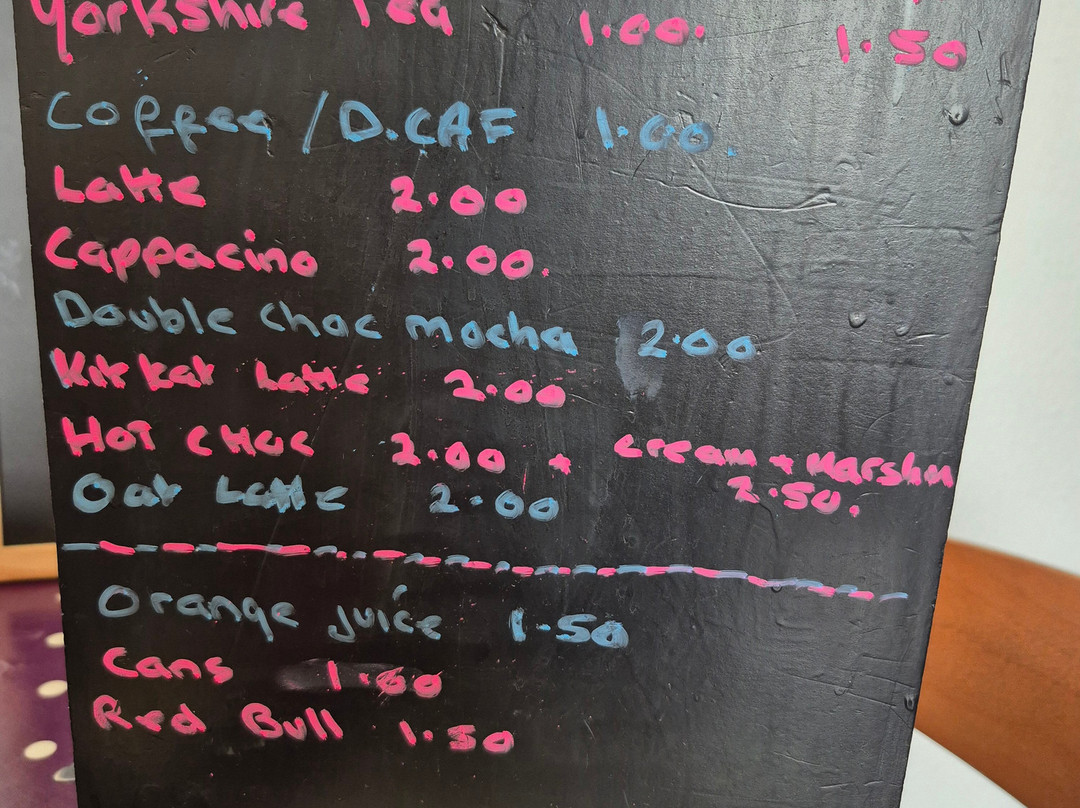 Yorkshire Tea 1.00. 1.50
Coffee / D.CAF 1.00.
Latte 2.00
Cappacino 2.00.
Double choc mocha 2.00
Kit kat Latte 2.00
HOT CHOC 2.00 + cream + Marshm
2.50.
Oat Latte 2.00
Orange juice 1-50
Cans 1.00
Red Bull 1.50